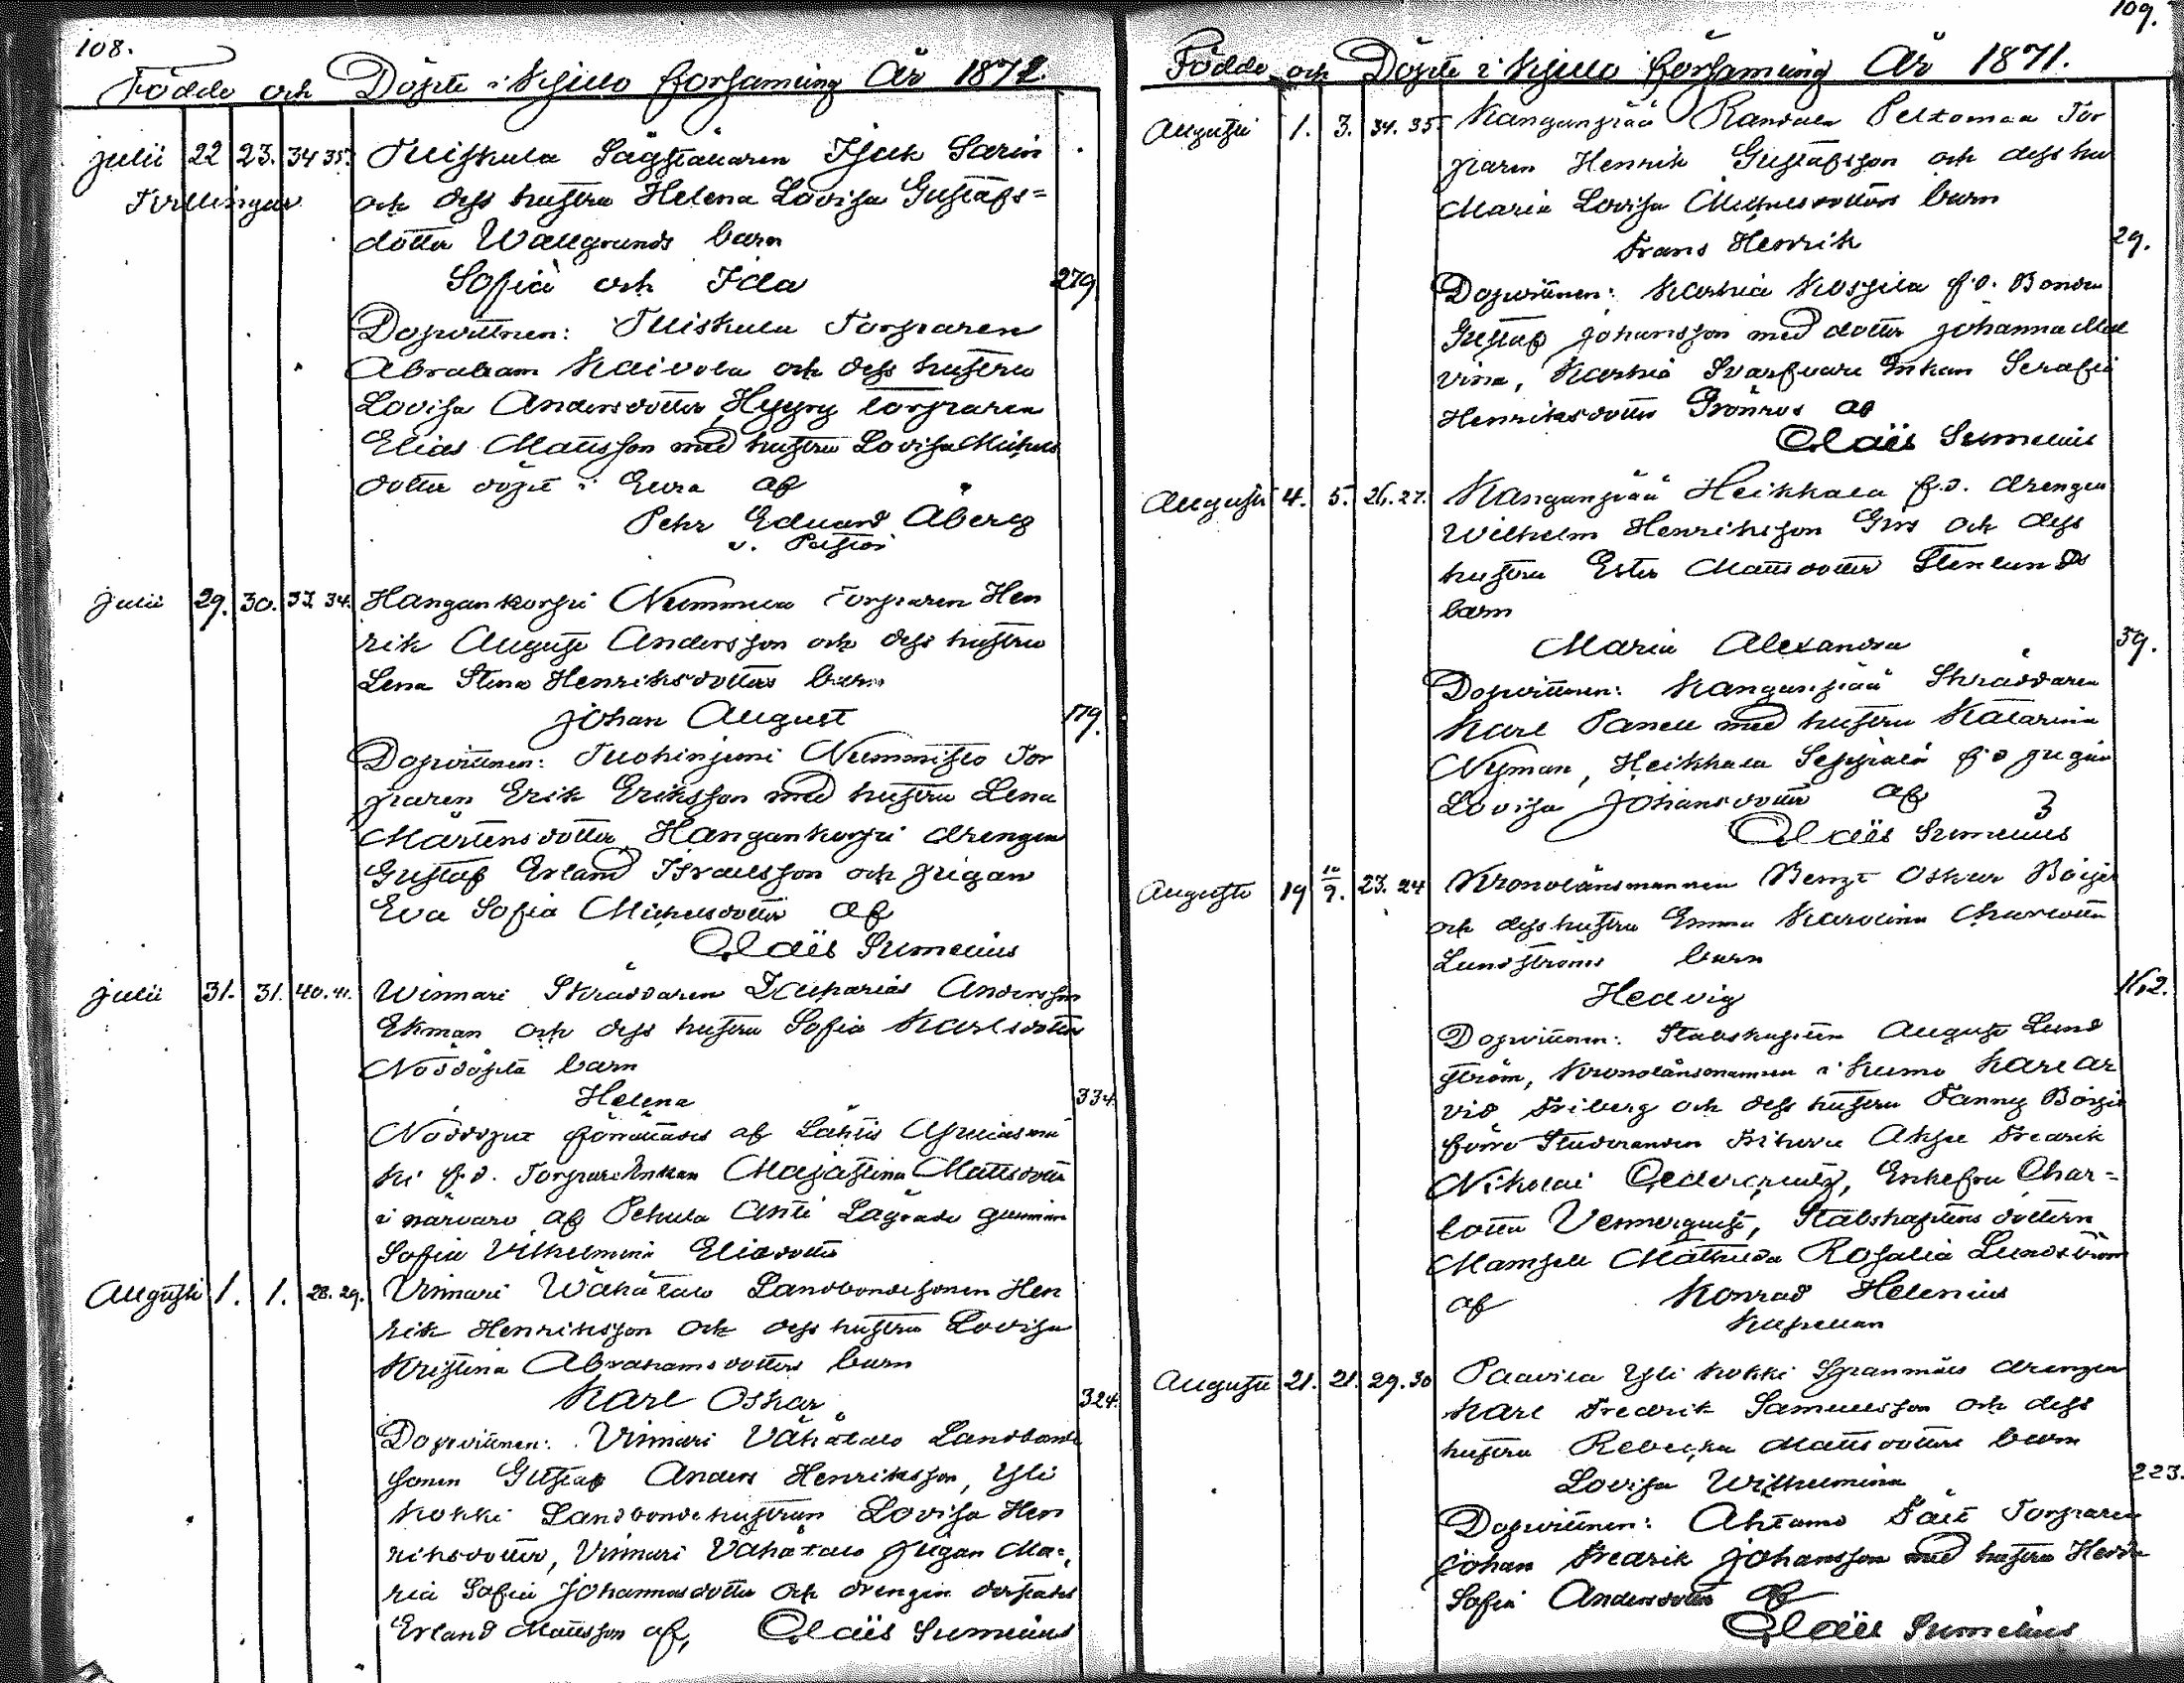 108.
Födde och Döpte i Kjulo församling År 1871.
Julii 22 23. 34 35. Tuiskula Sågställaren Isak Sarin
Tvillingar och dess hustru Helena Lovisa Gustafs=
dotter Wallgrunds barn
Sofia och Ida 279
Dopvittnen: Tuiskula Torparen
Abraham Kaivola och dess hustru
Lovisa Andersdotter, Hyyry torparen
Elias Mattsson med hustru Lovisa Michels
dotter döpte i Eura af
Pehr Eduard Åberg
v. Pastor
Julii 29. 30. 33. 34. Hangankorpi Nummela Torparen Hen
rik August Andersson och dess hustru
Lena Stina Henriksdotters barn
Johan August 179.
Dopvittnen: Tuohiniemi Nummisto Tor
paren Erik Eriksson med hustru Lena
Mårtensdotter, Hangankorpi drengen
Gustaf Erland Israelsson och pigan
Eva Sofia Michelsdotter af
Claës Sumelius
Julii 31. 31. 40. 41. Winnari Skräddaren Zacharias Andersson
Ekman och dess hustru Sofia Karlsdotters
Nöddöpta barn
Helena 334.
Nöddopet förrättades af
f.d. Torpare Enkan Maja Stina Mattsdotter
i närvaro af Pehula Antti gumman
Sofia Vilhelmina Eliedotter
Augusti 1. 1. 28. 29. Vinnari Wähätalo Landbondesonen Hen
rik Henriksson och dess hustru Lovisa
Kristina Abrahamsdotters barn
Karl Oskar 324.
Dopvittnen: Vinnari Vähätalo Landbonde
sonen Gustaf Anders Henriksson, Yli
Kokki Landbondehustrun Lovisa Hen
riksdotter, Vinnari Vähätalo pigan Ma=
ria Sofia Johannesdotter och drengen derstädes
Erland Mattsson af, Claës Sumelius
109.
Födde och Döpte i Kjulo församling År 1871.
Augusti 1. 3. 34. 35. Kanganpää Randala Peltomaa Tor
paren Henrik Gustafsson och dess hu
Maria Lovisa Michelsdotters barn
Frans Henrik 29.
Dopvittnen: Karhia Koskila f.d. Bonden
Gustaf Johansson med dotter Johanna Mal
vina, Karhia Svarfvare Enkan Serafia
Henriksdotter Grönros af
Claës Sumelius
Augusti 4. 5. 26. 27. Kanganpää Heikkala f.d. drengen
Wilhelm Henriksson och dess
hustru Ester Mattsdotter Stenlunds
barn
Maria Alexandra 39.
Dopvittnen: Kanganpää Skräddaren
Karl Panell med hustru Katarina
Nyman, Heikkala Seppälä f d pigan
Lovisa Johansdotter af
Claës Sumelius
Augusti 19 10/9. 23. 24 Kronolänsmannen Bengt Oskar Boijer
och dess hustru Emma Karolina Charlotta
Lundströms barn
Hedvig 162.
Dopvittnen: Stabskapiten August Lund
ström, Kronolänsmannen i Kumo Karl Ar
vid Friberg och dess hustru Fanny Boijer
förre Studeranden Friherre Axel Fredrik
Nikolai Cedercreutz, Enkefru Char=
lotta Vennerquist, Stabskaptens dottern
Mamsell Mathilda Rosalia Lundström
af Konrad Helenius
Kapellan
Augusti 21. 21. 29. 30 Paavila Yli Kokki drengen
Karl Fredrik Samuelsson och dess
hustru Rebecka Mattsdotters barn
Lovisa Wilhelmina 223.
Dopvittnen: Ahtamo Torparen
Johan Fredrik Johansson med hustru Hedda
Sofia Andersdotter af
Claës Sumelius